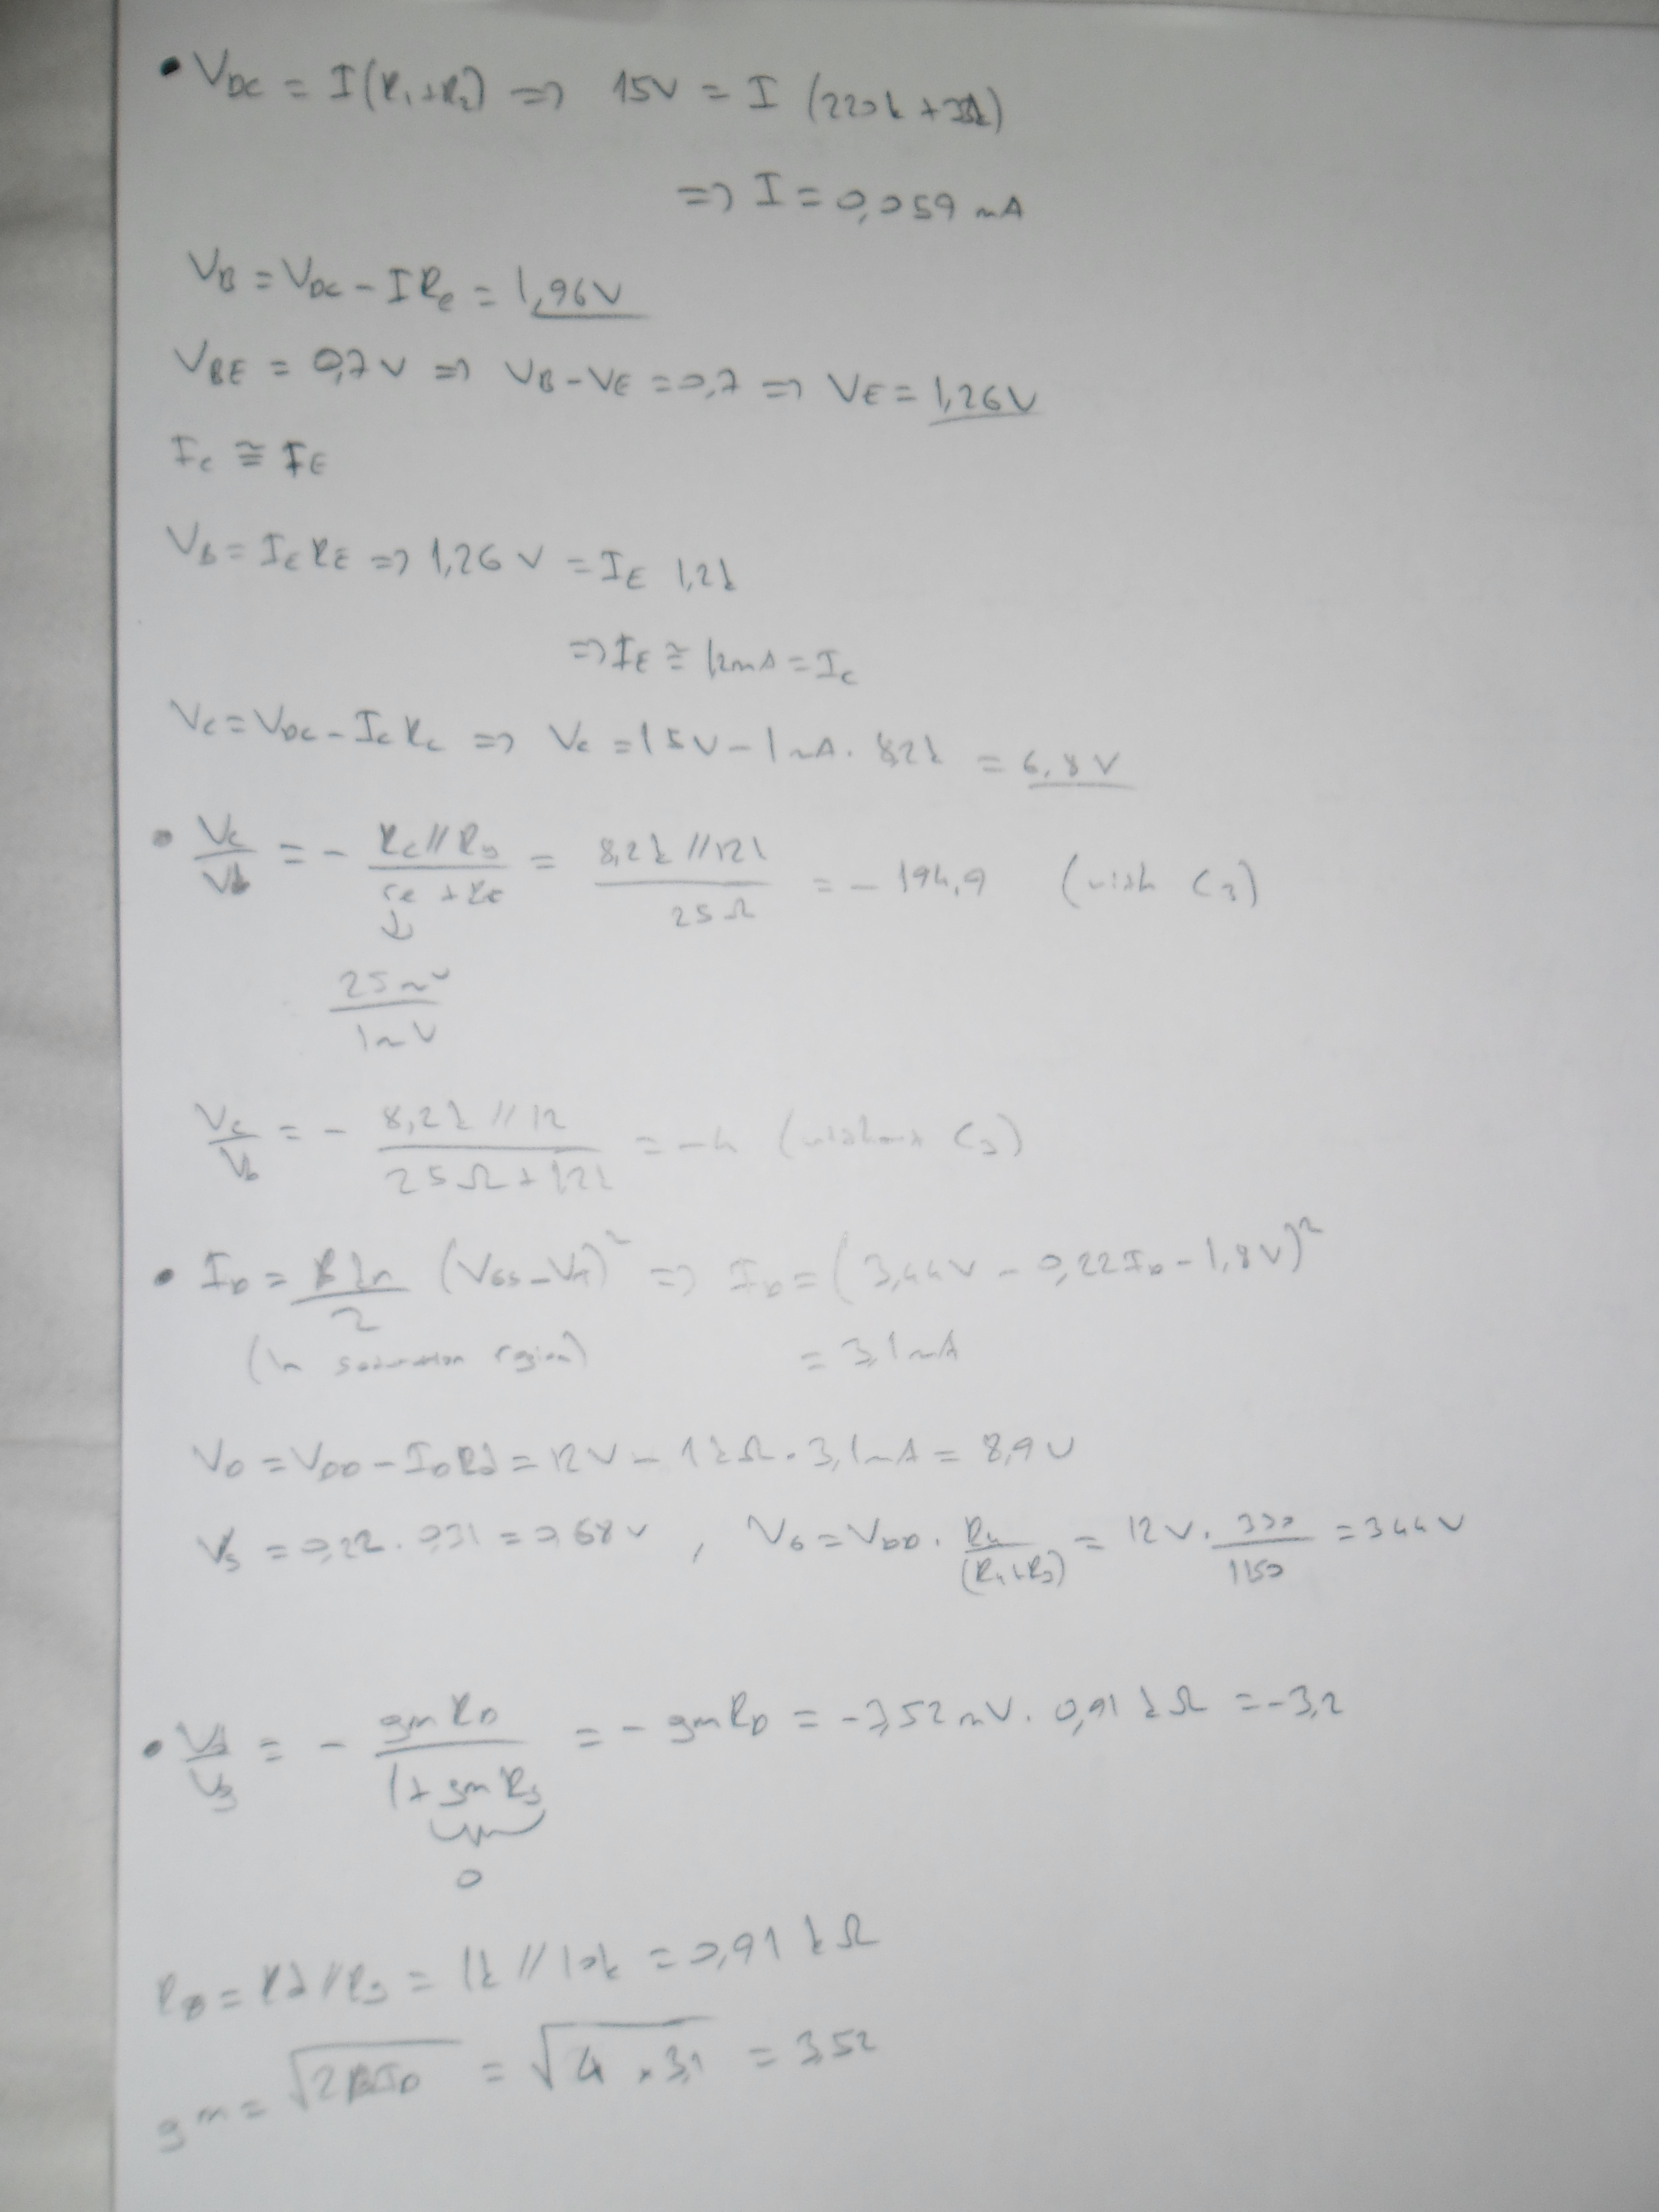 • VDC = I(R1+R2) => 15V = I (220k + 33k)
=> I = 0,059 mA
VB = VDC - IRe = 1,96V
VBE = 0,7V => VB-VE = 0,7 => VE = 1,26V
Ic ≅ IE
VB = IE RE => 1,26 V = IE 1,2k
=> IE ≅ 1,2mA = Ic
Vc = VDC - Ic Rc => Vc = 15V - 1mA. 8,2k = 6,8V
• Vc/Vb = - Rc//R5 / re + RE = 8,2k//12k / 25Ω = - 194,9 (with C3)
↓
25mV / 1mV
Vc/Vb = - 8,2k//12 / 25Ω + 1,2k = -4 (without C3)
• ID = (VGS-VT)² => ID = (3,44V - 0,22ID - 1,8V)²
(In saturation region) = 3,1mA
VD = VDD - IDRd = 12V - 1kΩ. 3,1mA = 8,9V
Vs = 0,22. 0,31 = 0,68V , VG = VDD. R4/(R4+R3) = 12V. 330/1150 = 3,44V
• Vd/Vg = - gmRD / 1+ gmRs = - gmRD = -3,52mV. 0,91kΩ = -3,2
0
RD = Rd//R9 = 1k//10k = 0,91kΩ
gm = √2BID = √4 x 3,1 = 3,52